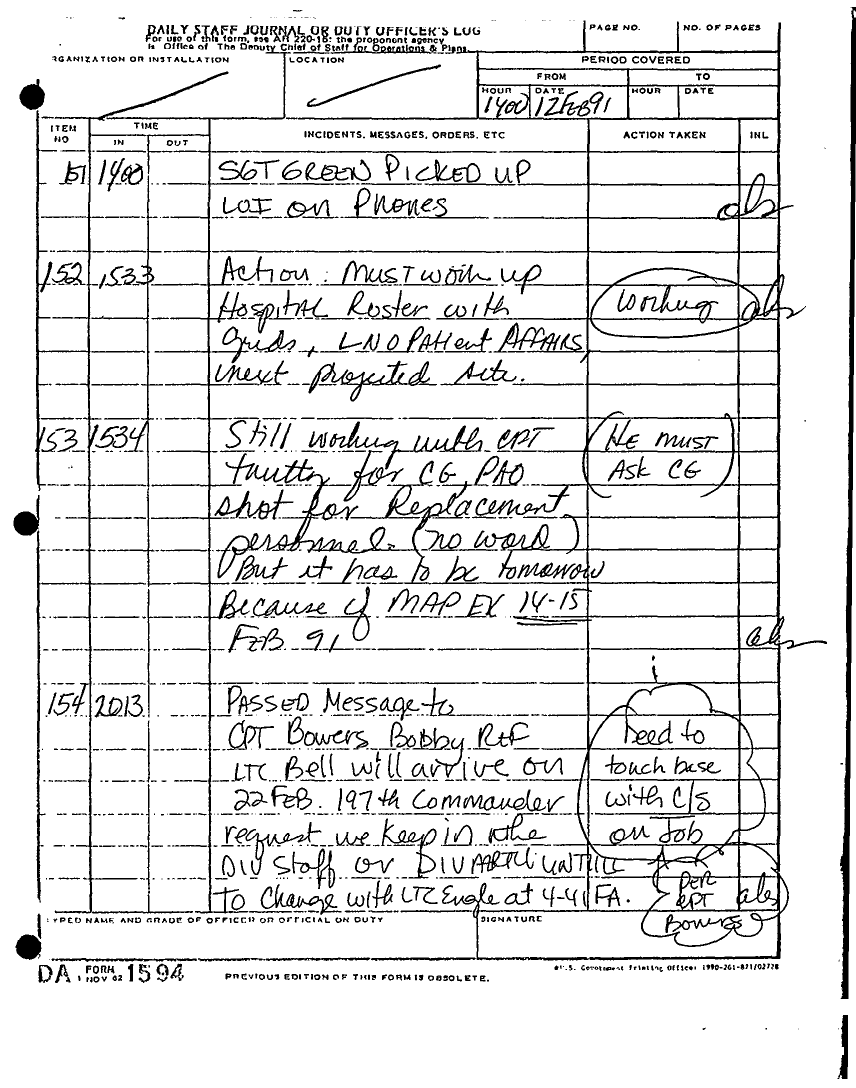 DAILY STAFF JOURNAL OR DUTY OFFICER'S LOG
For use of this form, see AR 220-15: the proponent agency
is Office of The Deputy Chief of Staff for Operations & Plans.
PAGE NO.
NO. OF PAGES
RGANIZATION OR INSTALLATION
LOCATION
PERIOD COVERED
FROM
TO
HOUR
DATE
HOUR
DATE
1400
12 FEB 91
ITEM NO
TIME
IN
OUT
INCIDENTS, MESSAGES, ORDERS, ETC
ACTION TAKEN
INL
151 1400 SGT GREEN PICKED UP
LOI on Phones
152 1533 Action: Must work up
Hospital Roster with Working
Grids, LNO PAtient AFFAIRS,
next projected site.
153 1534 Still working with CPT (He must
for CG, PAO Ask CG)
shot for Replacement
personnel. (no word)
But it has to be tomorrow
Because of MAP EX 14-15
FEB 91
154 2013 PASSED Message to
CPT Bowers Bobby Ref Need to
LTC Bell will arrive on touch base
22 FEB. 197th Commander with C/S
request we keep in the on Job
DIV Staff or DIVARTY UNTILL
To Change with LTC Engle at 4-41 FA. per
CPT
Bowers
TYPED NAME AND GRADE OF OFFICER OR OFFICIAL ON DUTY
SIGNATURE
DA FORM 1 NOV 62 1594
PREVIOUS EDITION OF THIS FORM IS OBSOLETE.
U.S. Government Printing Office: 1990-261-871/02728